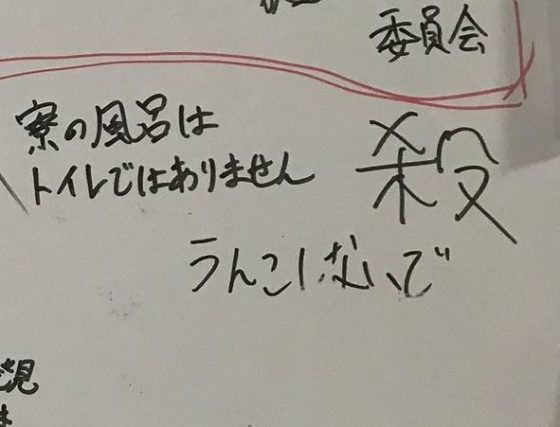 委員会
寮の風呂は
トイレではありません
殺
うんこしないで